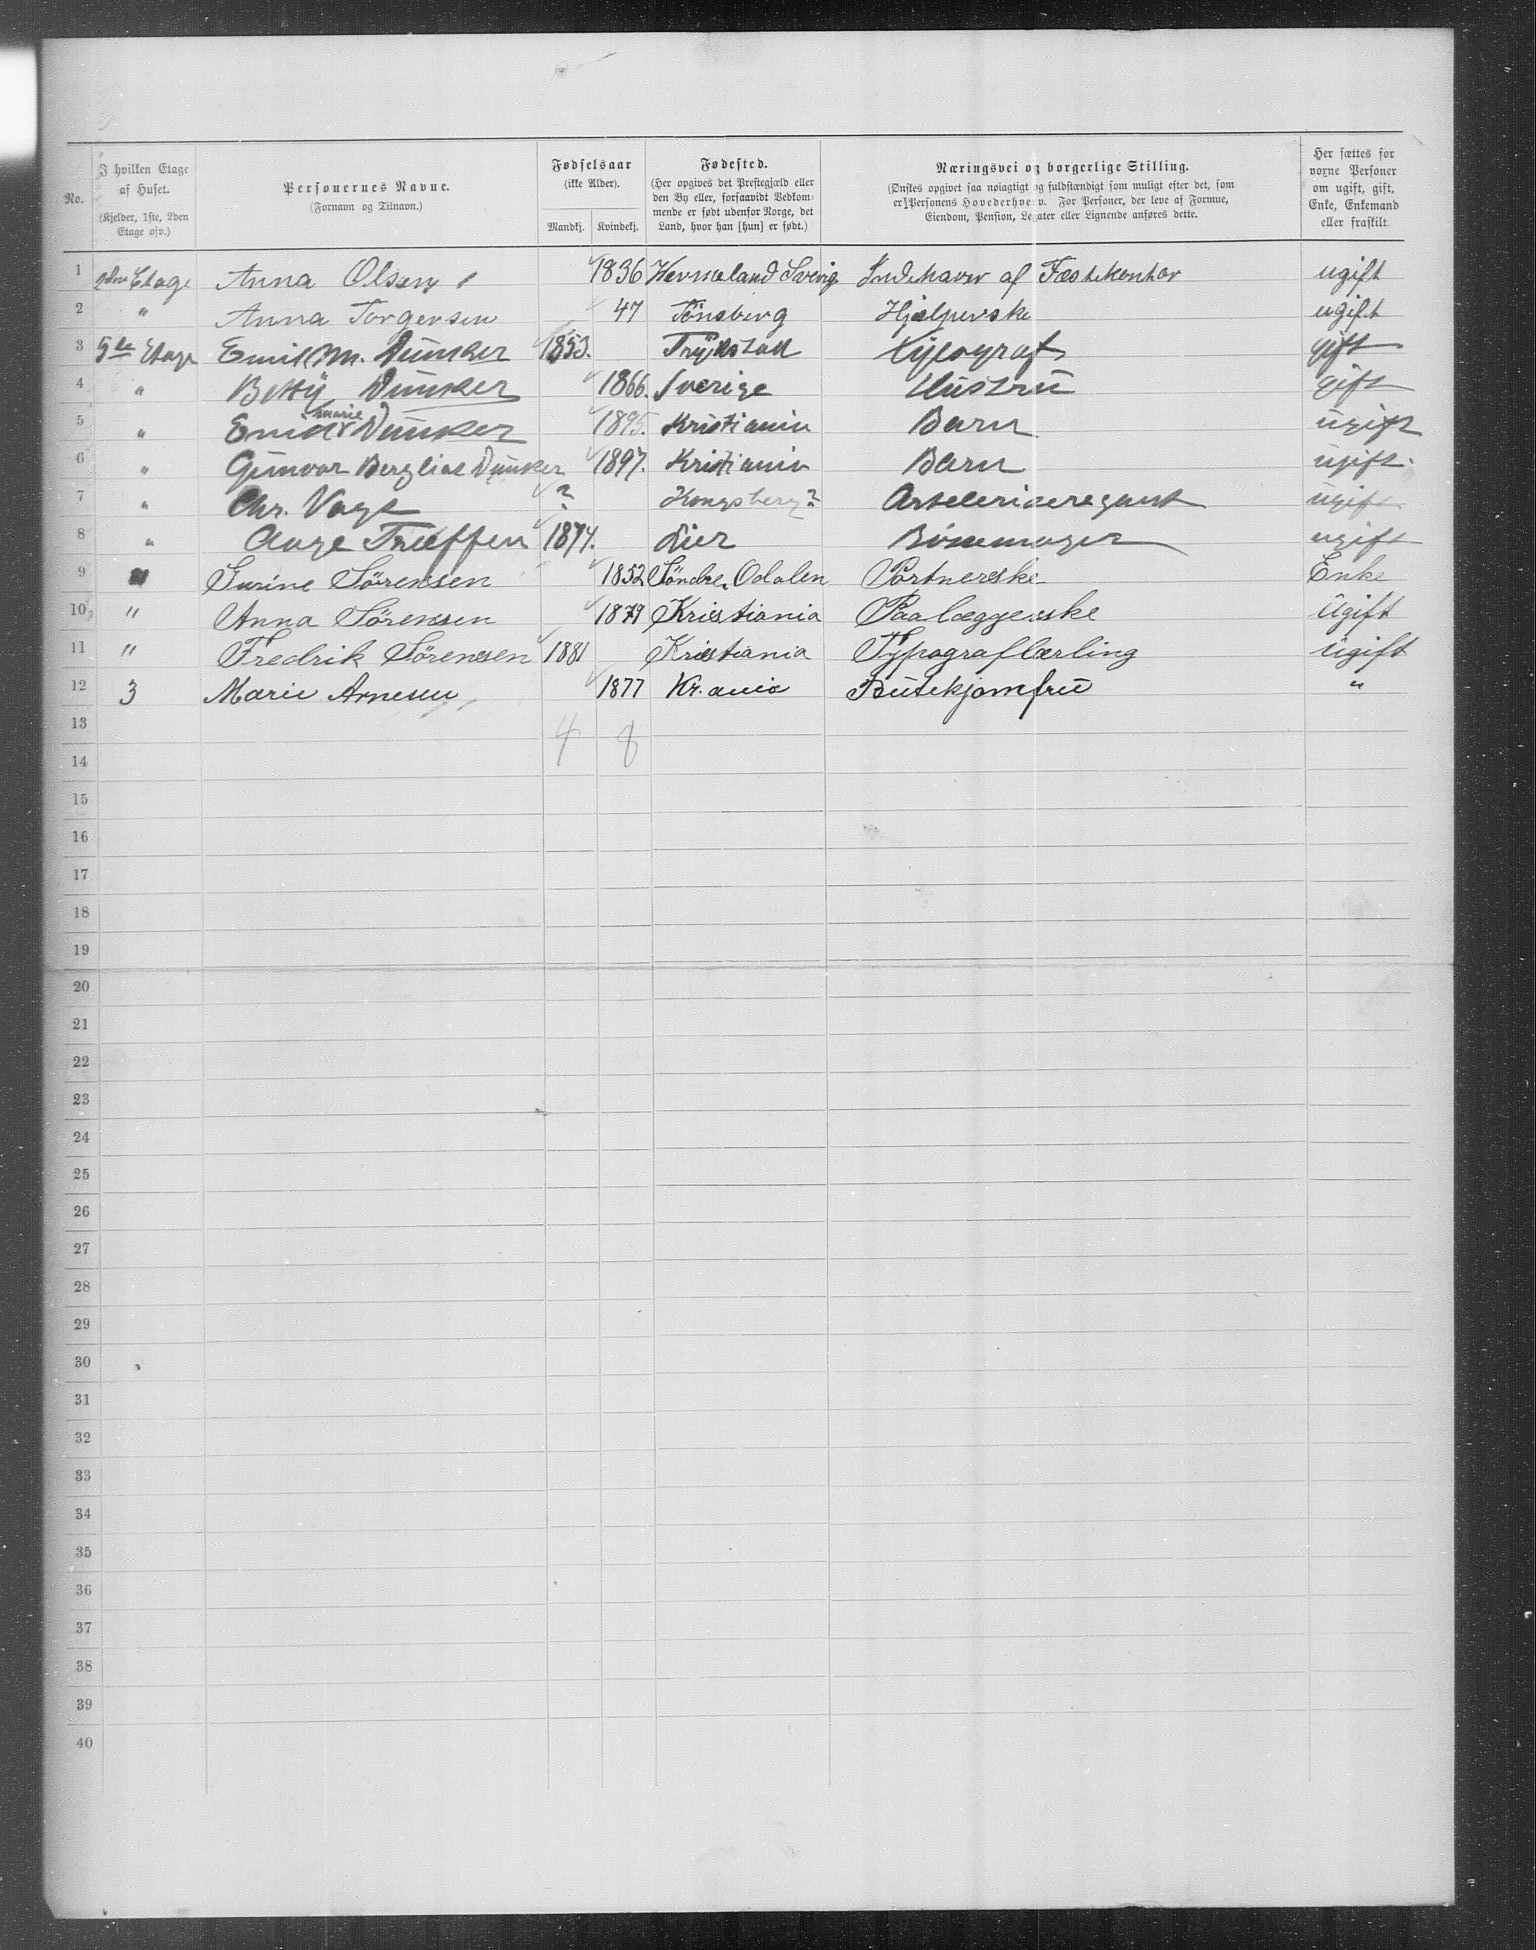 No.
I hvilken Etage af Huset.
(Kjelder, 1ste, 2den Etage osv.)
Personernes Navne.
(Fornavn og Tilnavn.)
Fødselsaar
(ikke Alder).
Mandkj. Kvindekj.
Fødested.
(Her opgives det Prestegjæld eller
den By eller, forsaavidt Vedkom-
mende er født udenfor Norge, det
Land, hvor han [hun] er født.)
Næringsvei og borgerlige Stilling.
(Ønskes opgivet saa nøiagtigt og fuldstændigt som muligt efter det, som
er Personens Hovederhverv. For Personer, der leve af Formue,
Eiendom, Pension, Legater eller Lignende anføres dette.
Her sættes for
voxne Personer
om ugift, gift,
Enke, Enkemand
eller fraskilt.
1 2den Etage Anna Olsen 1836 Vermeland Sverig Indehaver af Fæstekontor ugift
2 " Anna Torgersen 47 Tönsberg Hjælperske ugift
3 5te Etage Emil M. Dunker 1853. Trykstad Typograf gift
4 " Betty Dunker 1866. Sverige Hustru gift
5 " Marie Dunker 1895. Kristiania Barn ugift
6 " Gunvor Bergliot Dunker 1897. Kristiania Barn ugift.
7 " Chr. Vogt ? Kongsberg? ugift
8 " Aage 1874. Lier ugift
9 " Surine Sörensen 1852 Söndre Odalen Portnerske Enke
10 " Anna Sörensen 1879 Kristiania Paalæggerske Ugift
11 " Fredrik Sörensen 1881 Kristiania Typograflærling Ugift
12 3 Marie Arnesen 1877 Kr.ania Butikjomfru "
13 4 8
14
15
16
17
18
19
20
21
22
23
24
25
26
27
28
29
30
31
32
33
34
35
36
37
38
39
40